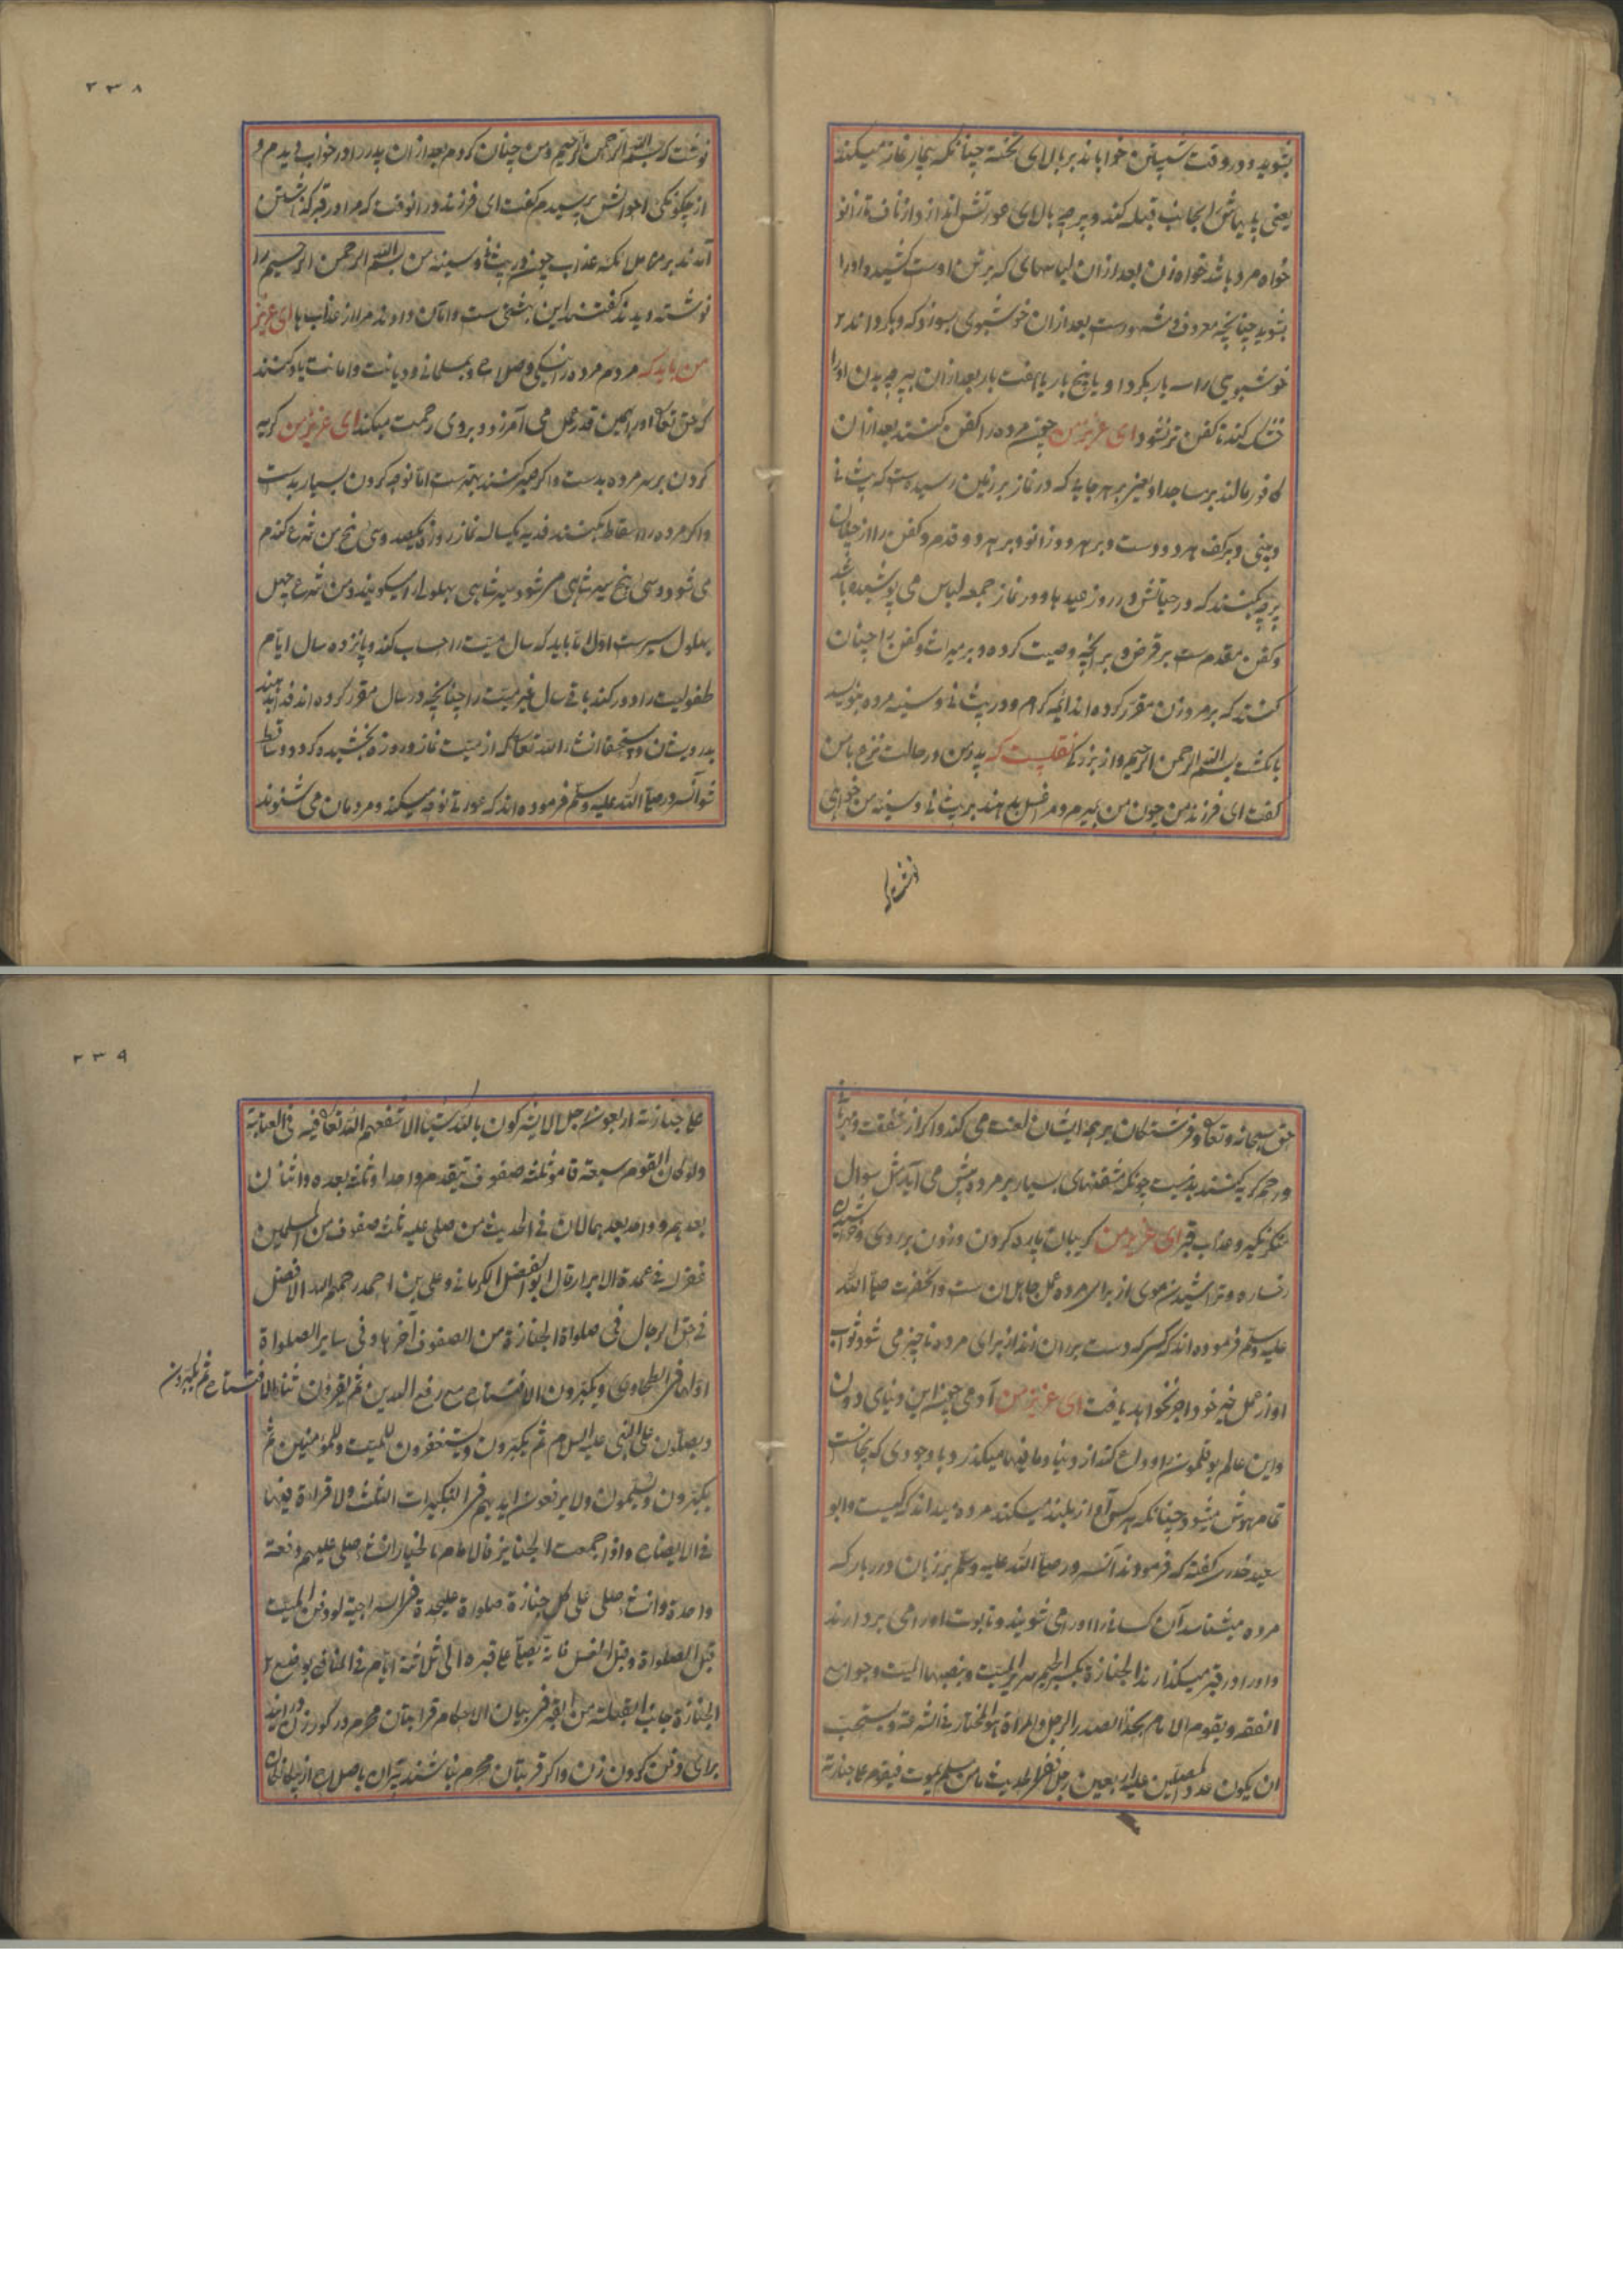 بشوید و در وقت شستن خواباند بر بالای تخته چنانکه بیمار نماز میکند
یعنی پایهاش را بجانب قبله کند و پرچه بالای عورتش اندازد از ناف تا زانو
خواه مرد باشد خواه زن بعد از ان لباسهای که برتن اوست کشیده او را
بشوید چنانچه معروف و مشهورست بعد ازان خوشبوی بسوزد که و بگرداند
خوشبوی را سه بار بگرد او یا پنج بار یا هفت بار بعد از ان بپرچه بدن او را
خشک کند تا کفن تر نشود ای عزیز من چون مرده را کفن کنند بعد از ان
کافور مالند بر مساجد او یعنی بر هر جایی که در نماز بر زمین رسیده ست که پیشانی
و بینی و بر کف هر دو دست و بر هر دو زانو و بر هر دو قدم و کفن را از چنان
پرچه کنند که در حیاتش در روز عیدها و در نماز جمعه لباس می پوشیده باشد
و کفن مقدم ست بر قرض و بر آنچه وصیت کرده و بر میراث و کفن را چنان
کنند که بر مرد و زن مقرر کرده اند ائمه کرام و در پیشانی و سینه مرده بنویسد
بانگشت بسم الله الرحمن الرحیم و از بزرگی نقلیست که پدر من در حالت نزع بامن
گفت ای فرزند من چون من بمیرم و مرا غسل بدهند بر پیشانی و سینه من خواهی
نوشت که
۲۳۸
نوشت که بسم الله الرحمن الرحیم و من چنان کردم بعد از ان پدر را در خواب دیدم و
از چگونگی احوالش پرسیدم گفت ای فرزند در انوقت که مرا در قبر گذاشتن
آمدند بر من ملائکه عذاب چون در پیشانی و سینه من بسم الله الرحمن الرحیم را
نوشته دیدند گفتند این بهشتی ست و امان دادند مرا از عذابها ای عزیز
من باید که مردم مرده را بنیکی و صلاح و بمسلمانی و دیانت و امانت یاد کنند
که حق تعالی او را بهمین قدر عمل می آمرزد و بروی رحمت میکند ای عزیز من گریه
کردن بر سر مرده بدست و اگر صبر کنند بهترست اما نوحه کردن بسیار بدست
و اگر مرده را اسقاط بکنند فدیه یکساله نماز و روزه یکصد و سی و پنج من شرع گندم
می شود و سی و پنج سیر شاهی میشود سیر شاهی بهلولی را میگویند و من شرع چهل
بهلول سیرست اولا باید که سال میت را حساب کند و پانزده سال ایام
طفولیت را دور کند باقی سال عمر میت را چنانچه در سال مقرر کرده اند فدا بدهند
بدرویشان و مستحقان انشاء الله تعالی که از میت نماز و روزه بخشیده گردد و ساقط
شود آنسرور صلی الله علیه وسلم فرموده اند که عورتی نوحه میکند و مردمان می شنوند
حق سبحانه و تعالی و فرشتگان بر همه ایشان لعنت می کند و اگر از شفقت و مهربانی
و رحم گریه کنند بد نیست چونکه شفقتهای بسیار بر مرده پیش می آید مثل سوال
منکر نکیر و عذاب قبر ای عزیز من گریبان پاره کردن و زدن بر روی و خراشیدن
رخساره و تراشیدن موی از برای مرده عمل جاهلان ست و آنحضرت صلی الله
علیه وسلم فرموده اند که کسی که دست بر ران زند از برای مرده ناچیز می شود ثواب
او و از عمل خیر خود اجر نخواهد یافت ای عزیز من آدمی چون این دنیای دون
و این عالم بوقلمون را وداع کند از دنیا و مافیها میگذرد با وجودی که بیجانست
تمام بهوش میشود چنانکه هر کس آواز بلند میکند مرده میداند که کیست و ابو
سعید خدری گفته که فرمودند آنسرور صلی الله علیه وسلم بر زبان درر بار که
مرده میشناسد آن کسانی را او را می شویند و تابوت او را می بردارند
و او را در قبر میگذارند الجنازة بکسر الجیم سریر المیت و بنصبها المیت و جوامع
الفقه و یقوم الامام بحذاء الصدر الرجل و المراة هو المختار فی الشرعة و یستحب
ان یکون عدد المصلین علیه اربعین رجلا فی الحدیث ما من مسلم یموت فیقوم علی جنازته
۲۳۹
علی جنازته اربعون رجل لا یشرکون بالله شیئا الا شفعهم الله تعالی فیه فی العنایة
ولو کان القوم سبعة قاموا ثلثة صفوف یتقدم واحد و ثلثة بعده و اثنان
بعدهم و واحد بعدهما لان فی الحدیث من صلی علیه ثلث صفوف من المسلمین
غفر له فی عمدة الابرار قال ابو الفضل الکرمانی و علی بن احمد رحمهم الله الافضل
فی حق الرجال فی صلواة الجنازة من الصفوف آخرها و فی سایر الصلواة
اولها فی الطحاوی و یکبرون الافتتاح مع رفع الیدین ثم یقرون ثناء الافتتاح ثم یکبرون
و یصلون علی النبی علیه السلام ثم یکبرون و یستغفرون للمیت و للمؤمنین ثم
یکبرون و یسلمون ولا یرفعون ایدیهم فی التکبیرات الثلث ولا قراءة فیها
فی الایضاح و اذا جمعت الجنایز فالامام بالخیار ان شاء صلی علیهم دفعة
واحدة و ان شاء صلی علی کل جنازة صلواة علیحدة فی السراجیة لو دفن المیت
قبل الصلواة و قبل الغسل فانه یصلی علی قبره الی ثلاثة ایام فی المنافع یوضع
الجنازة جانب القبلة من القبر فی بیان الاحکام قرابتان محرم در گور زن درایند
برای دفن کردن زن و اگر قریبتان محرم نباشند پیران با صلاح از بیگانگان